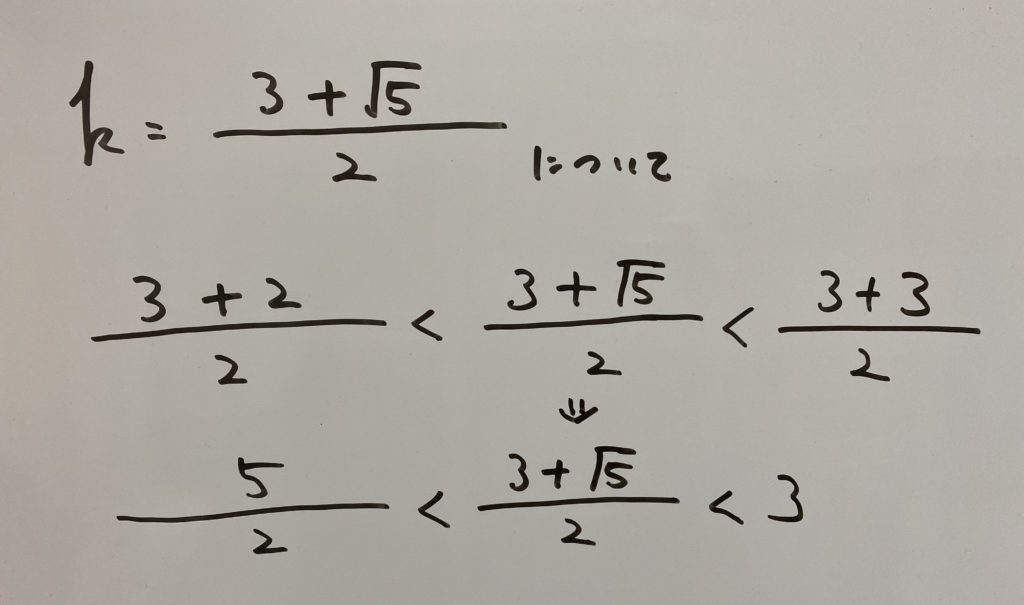 k = (3 + √5) / 2 について
(3 + 2) / 2 < (3 + √5) / 2 < (3 + 3) / 2
⇓
5 / 2 < (3 + √5) / 2 < 3